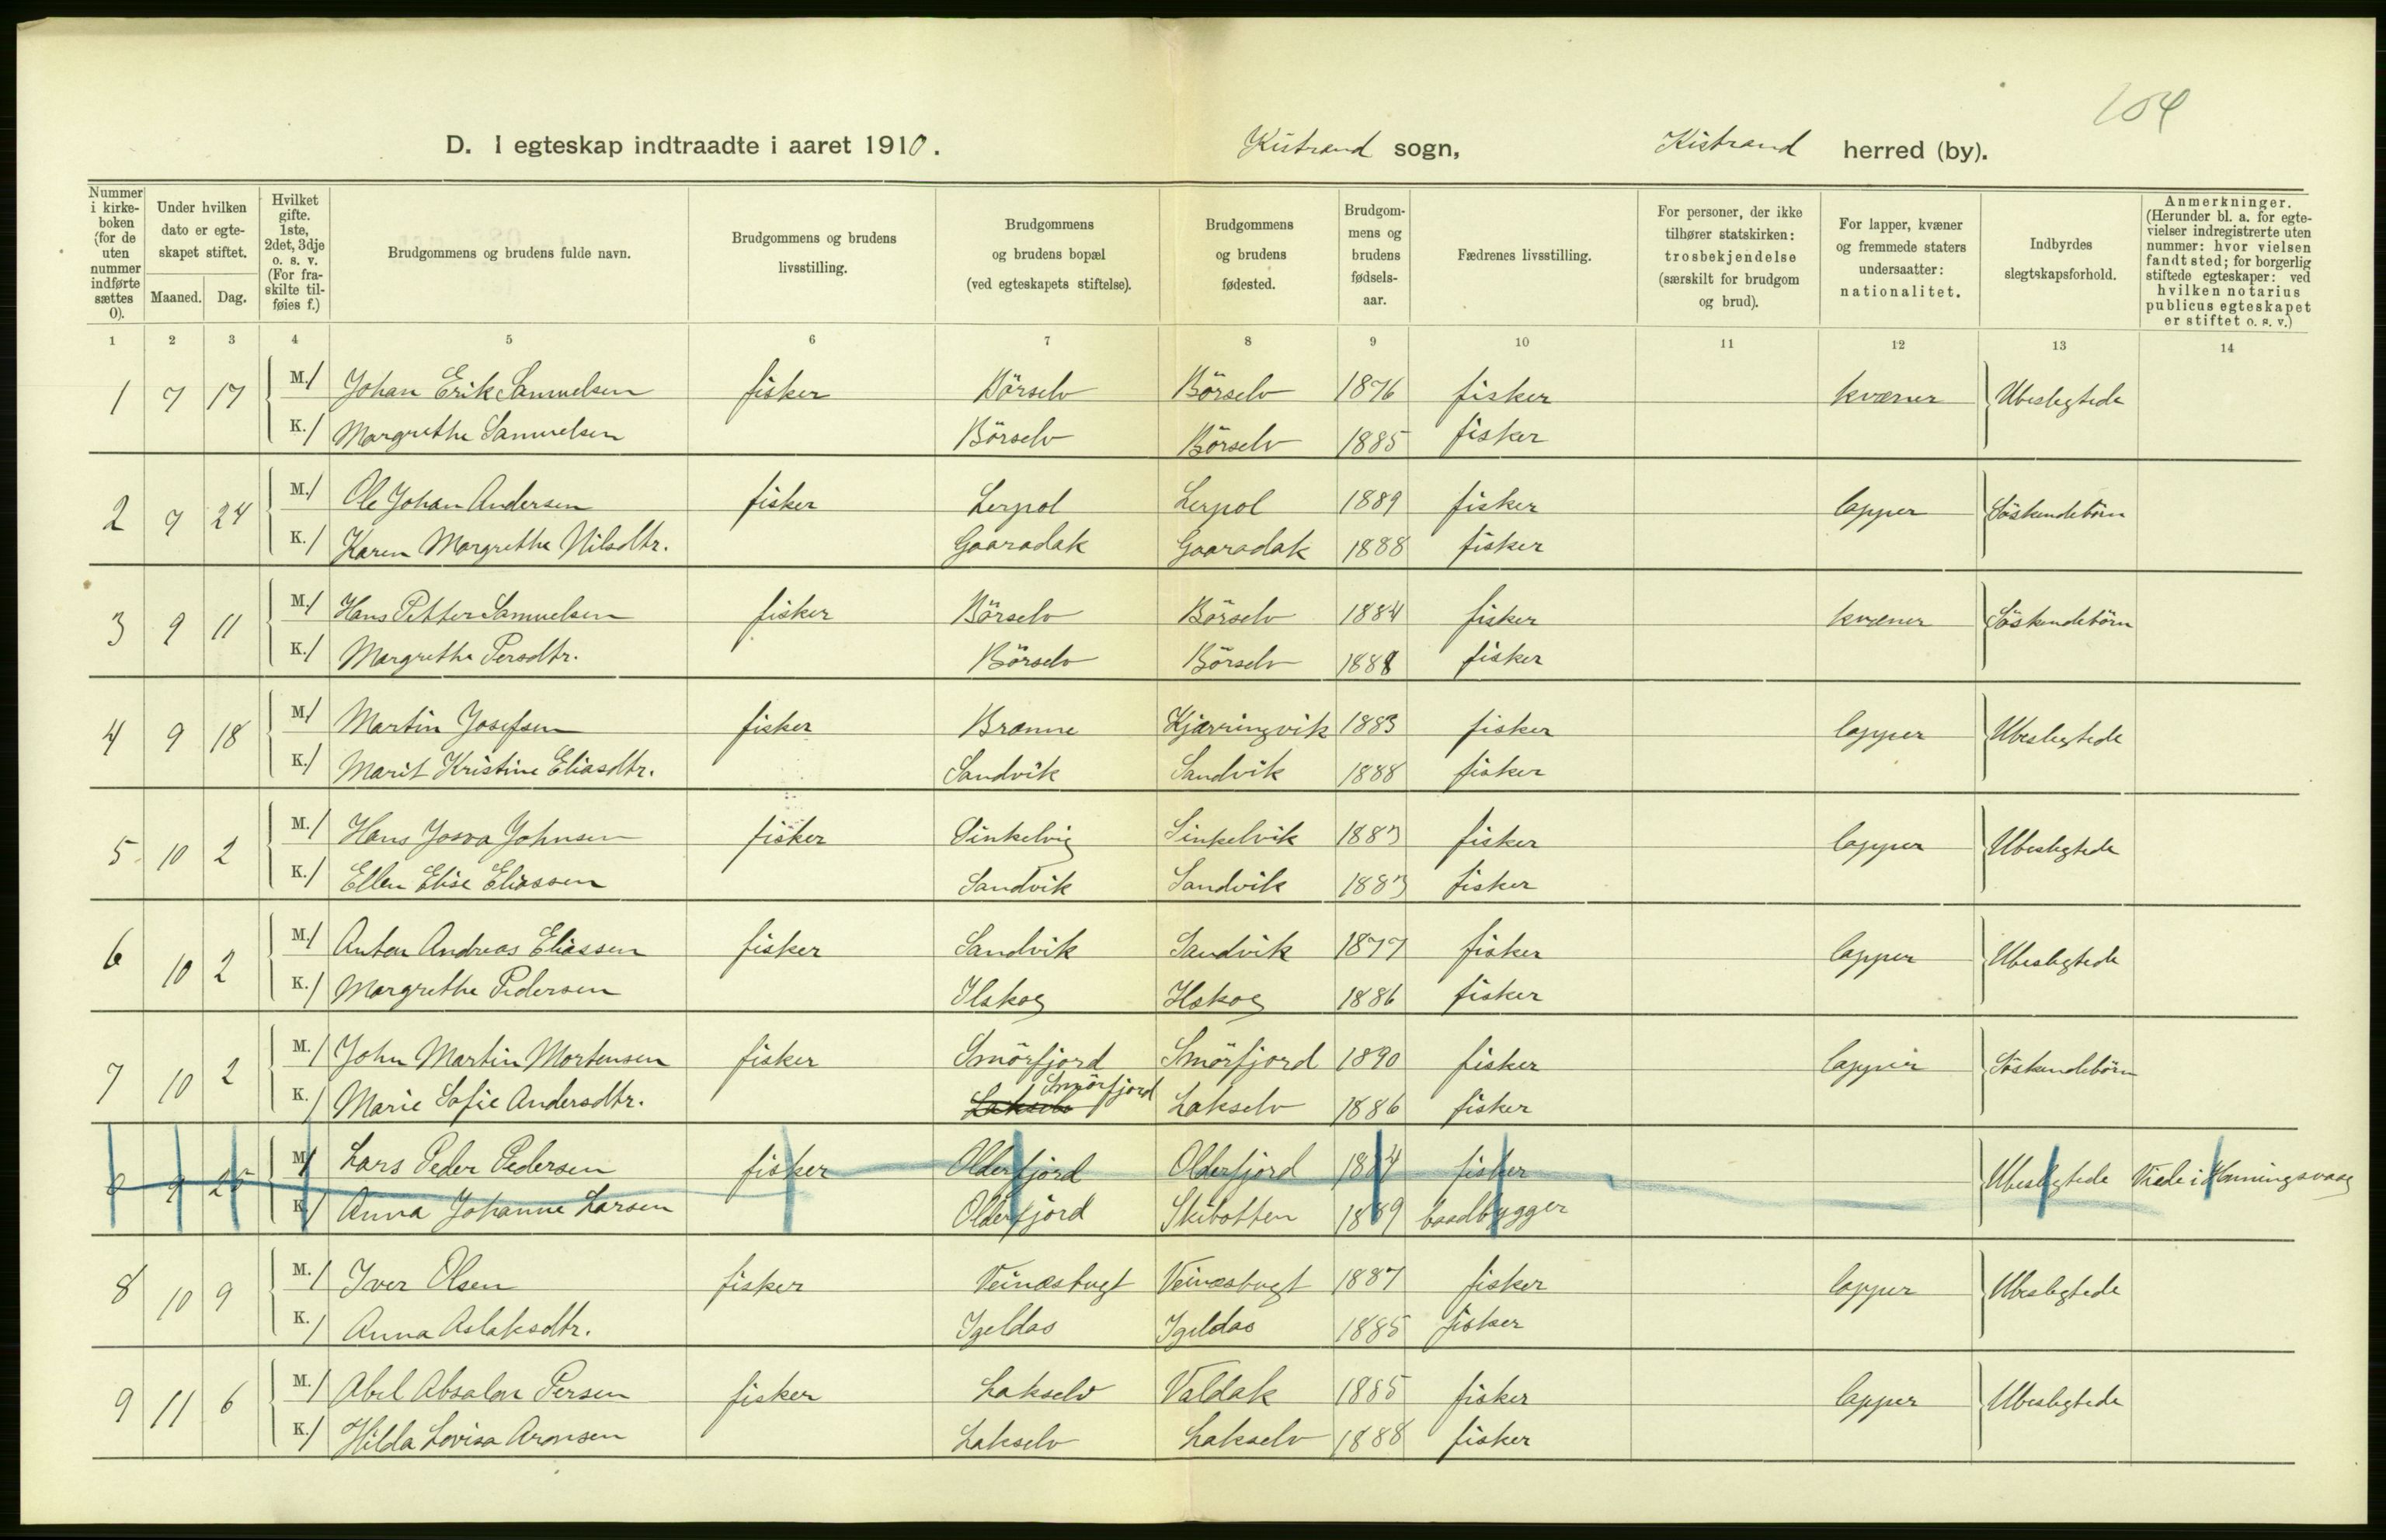 104
D. I egteskap indtraadte i aaret 1910. Kistrand sogn, Kistrand herred (by).
Nummer i kirkeboken (for de uten nummer indførte sættes 0). Under hvilken dato er egteskapet stiftet. Maaned. Dag. Hvilket gifte. 1ste, 2det, 3dje o. s. v. (For fraskilte tilføies f.) Brudgommens og brudens fulde navn. Brudgommens og brudens livsstilling. Brudgommens og brudens bopæl (ved egteskapets stiftelse). Brudgommens og brudens fødested. Brudgommens og brudens fødselsaar. Fædrenes livsstilling. For personer, der ikke tilhører statskirken: trosbekjendelse (særskilt for brudgom og brud). For lapper, kvæner og fremmede staters undersaatter: nationalitet. Indbyrdes slegtskapsforhold. Anmerkninger. (Herunder bl. a. for egtevielser indregistrerte uten nummer: hvor vielsen fandt sted; for borgerlig stiftede egteskaper: ved hvilken notarius publicus egteskapet er stiftet o. s. v.)
1 2 3 4 5 6 7 8 9 10 11 12 13 14
1 7 17 M. 1 Johan Erik Samuelsen fisker Börselv Börselv 1876 fisker kvæner Ubeslegtede
K. 1 Margrethe Samuelsen Börselv Börselv 1885 fisker
2 9 24 M. 1 Ole Johan Andersen fisker Lerpol Lerpol 1889 fisker lapper Söskendebörn
K. 1 Karen Margrethe Nilsdtr. Gaaradak Gaaradak 1888 fisker
3 9 11 M. 1 Hans Petter Samuelsen fisker Börselv Börselv 1884 fisker kvæner Söskendebörn
K. 1 Margrethe Persdtr. Börselv Börselv 1888 fisker
4 9 18 M. 1 Martin Josefsen fisker Brænne Kjærringvik 1883 fisker lapper Ubeslegtede
K. 1 Marit Kristine Eliasdtr. Sandvik Sandvik 1888 fisker
5 10 2 M. 1 Hans Josva Johnsen fisker Sinkelvig Sinkelvik 1883 fisker lapper Ubeslegtede
K. 1 Ellen Elise Eliassen Sandvik Sandvik 1883 fisker
6 10 2 M. 1 Anton Andreas Eliassen fisker Sandvik Sandvik 1877 fisker lapper Ubeslegtede
K. 1 Margrethe Pedersen Ilskog Ilskog 1886 fisker
7 10 2 M. 1 John Martin Mortensen fisker Smörfjord Smörfjord 1890 fisker lapper Söskendebörn
K. 1 Marie Sofie Andersdtr. Lakselv Smörfjord Lakselv 1886 fisker
0 9 25 M. 1 Lars Peder Pedersen fisker Olderfjord Olderfjord 1884 fisker Ubeslegtede Viede i Honningsvaag
K. 1 Anna Johanne Larsen Olderfjord Skibotten 1889 baadbygger
8 10 9 M. 1 Iver Olsen fisker Veinæsbugt Veinæsbugt 1887 fisker lapper Ubeslegtede
K. 1 Anna Aslaksdtr. Igeldas Igeldas 1885 fisker
9 11 6 M. 1 Abel Absalon Persen fisker Lakselv Valdak 1885 fisker lapper Ubeslegtede
K. 1 Hilda Lovisa Aronsen Lakselv Lakselv 1888 fisker